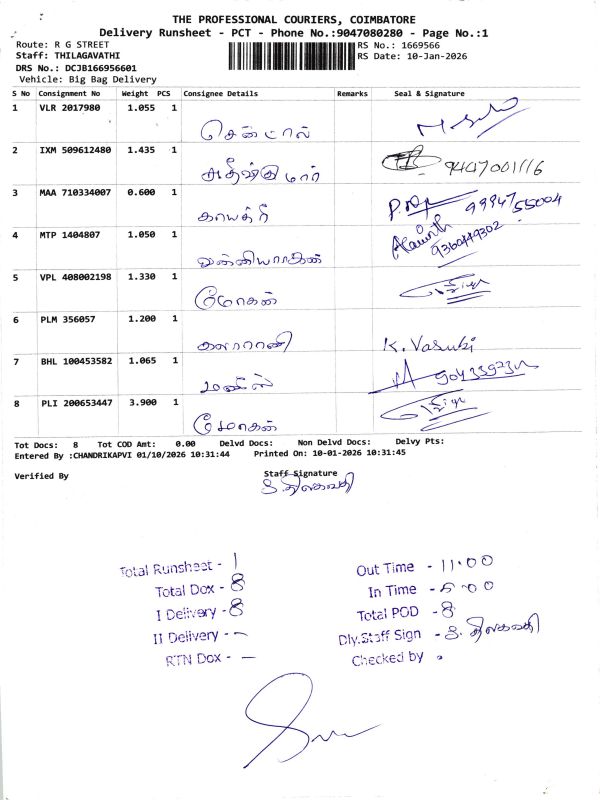 THE PROFESSIONAL COURIERS, COIMBATORE
Delivery Runsheet - PCT - Phone No.:9047080280 - Page No.:1
Route: R G STREET
RS No.: 1669566
Staff: THILAGAVATHI
RS Date: 10-Jan-2026
DRS No.: DCJB166956601
Vehicle: Big Bag Delivery
S No Consignment No Weight PCS Consignee Details Remarks Seal & Signature
1 VLR 2017980 1.055 1 சென்ட்ரல்
2 IXM 509612480 1.435 1 9407001116
3 MAA 710334007 0.600 1 காயத்ரீ
4 MTP 1404807 1.050 1 வன்னியராஜன் 9360449302
5 VPL 408002198 1.330 1 மோகன்
6 PLM 356057 1.200 1 கலாராணி K. Vasuki
7 BHL 100453582 1.065 1
8 PLI 200653447 3.900 1 மோகன்
Tot Docs: 8 Tot COD Amt: 0.00 Delvd Docs: Non Delvd Docs: Delvy Pts:
Entered By :CHANDRIKAPVI 01/10/2026 10:31:44 Printed On: 10-01-2026 10:31:45
Verified By Staff Signature
உ. திலகவதி
Total Runsheet - 1
Total Dox - 8
I Delivery - 8
II Delivery - -
RTN Dox - -
Out Time - 11.00
In Time - 5.00
Total POD - 8
Dly.Staff Sign - உ. திலகவதி
Checked by